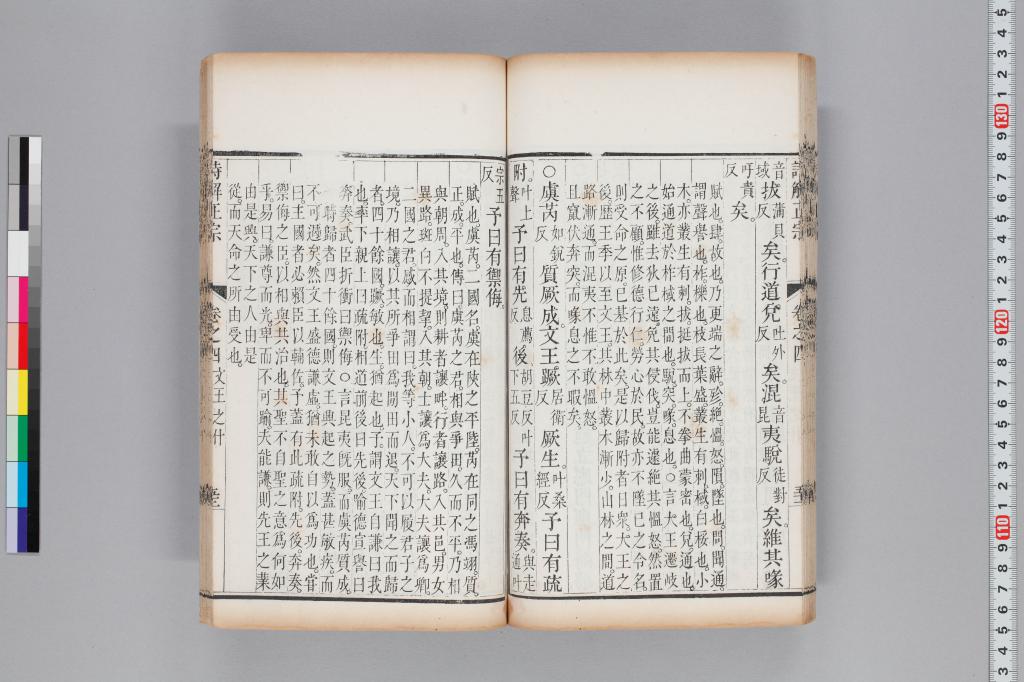 音域拔蒲貝反矣。行道兌吐外反矣。混音昆夷駾徒對反矣。維其喙
吁貴反矣。
賦也。肆。故也。乃更端之辭。殄。絕。慍。怒。隕。墜也。問聞通。
謂聲譽也。柞。櫟也。枝長葉盛。叢生有刺。棫。白桵也。小
木。亦叢生有刺。拔。挺拔而上。不拳曲蒙密也。兌。通也。
始通道於柞棫之間也。駾。突。喙。息也。○言大王遷岐
之後。雖去狄已遠。免其侵伐。豈能遽絕其慍怒。然置
之不顧。惟修德行仁。勞心於民。故亦不墜已之令名。
則受命之原。已基於此矣。是以歸附者日眾。大王之
後。歷王季以至文王。其林中叢木漸少。山林之間。道
路漸通。而混夷不惟不敢慍怒。
且竄伏奔突。而喙息之不暇矣。
○虞芮如銳反質厥成。文王蹶居衛反厥生。叶桑經反予曰有疏
附。叶上聲予曰有先息薦反後。胡豆反叶下五反予曰有奔奏。與走通叶
宗五反予曰有禦侮。
賦也。虞芮。二國名。虞在陜之平陸。芮在同之馮翊。質。
正。成。平也。傳曰虞芮之君。相與爭田。久而不平。乃相
與朝周。入其境。則耕者讓畔。行者讓路。入其邑。男女
異路。斑白不提挈。入其朝。士讓爲大夫。大夫讓爲卿。
二國之君。感而相謂曰。我等小人。不可以履君子之
境。乃相讓以其所爭田爲閒田而退。天下聞之而歸
者四十餘國。蹶。敏也。生。猶起也。予。謂文王自謙曰我
也。率下親上曰疏附。相道前後曰先後。喻德宣譽曰
奔奏。武臣折衝曰禦侮。○言昆夷旣服。而虞芮質成。
時歸者四十餘國。則文王典起之勢。蓋甚敏疾。而
不可遏矣。然文王盛德謙虛。猶未敢自以爲功也。嘗
曰。王國者必賴臣以輔佐。予蓋有此疏附。先後。奔奏。
禦侮之臣。以相與共治也。其聖不自聖之意。爲何如
乎。易曰。謙尊而光。卑而不可踰。夫能謙則先王之業
由是興。天下之人由是
從。而天命之所由受也。
詩解正宗 卷之四 文王之什